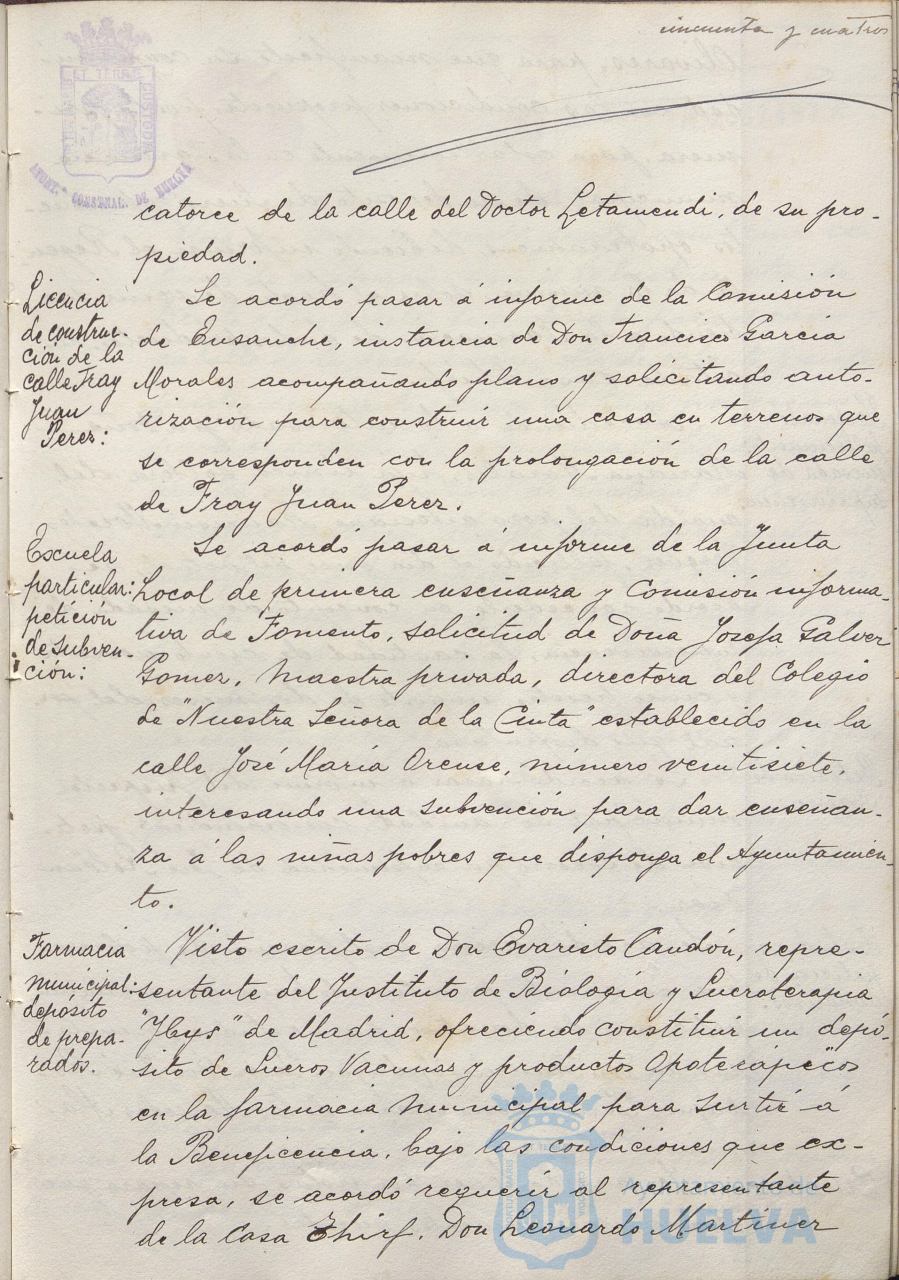 cincuenta y cuatro
PORTUS MARIS
ET TERRÆ
CUSTODIA
AYUNT.º CONSTNAL. DE HUELVA
catorce de la calle del Doctor Letamendi, de su pro-
piedad.
Licencia
de construc-
ción de la
calle Fray
Juan
Perez:
Se acordó pasar á informe de la Comisión
de Ensanche, instancia de Don Francisco Garcia
Morales acompañando plano y solicitando auto-
rización para construir una casa en terrenos que
se corresponden con la prolongación de la calle
de Fray Juan Perez.
Escuela
particular:
petición
de subven-
ción:
Se acordó pasar á informe de la Junta
Local de primera enseñanza y Comisión informa-
tiva de Fomento, solicitud de Doña Josefa Galvez
Gomez, Maestra privada, directora del Colegio
de "Nuestra Señora de la Cinta" establecido en la
calle José María Orense, número veintisiete,
interesando una subvención para dar enseñan-
za á las niñas pobres que disponga el Ayuntamien-
to.
Farmacia
municipal:
depósito
de prepa-
rados.
Visto escrito de Don Evaristo Caudón, repre-
sentante del Instituto de Biologia y Sueroterapia
"Ibys" de Madrid, ofreciendo constituir un depó-
sito de Sueros Vacunas y productos Opoterápicos
en la farmacia Municipal para surtir á
la Beneficencia, bajo las condiciones que ex-
presa, se acordó requerir al representante
de la Casa Thirf, Don Leonardo Martinez
HUELVA